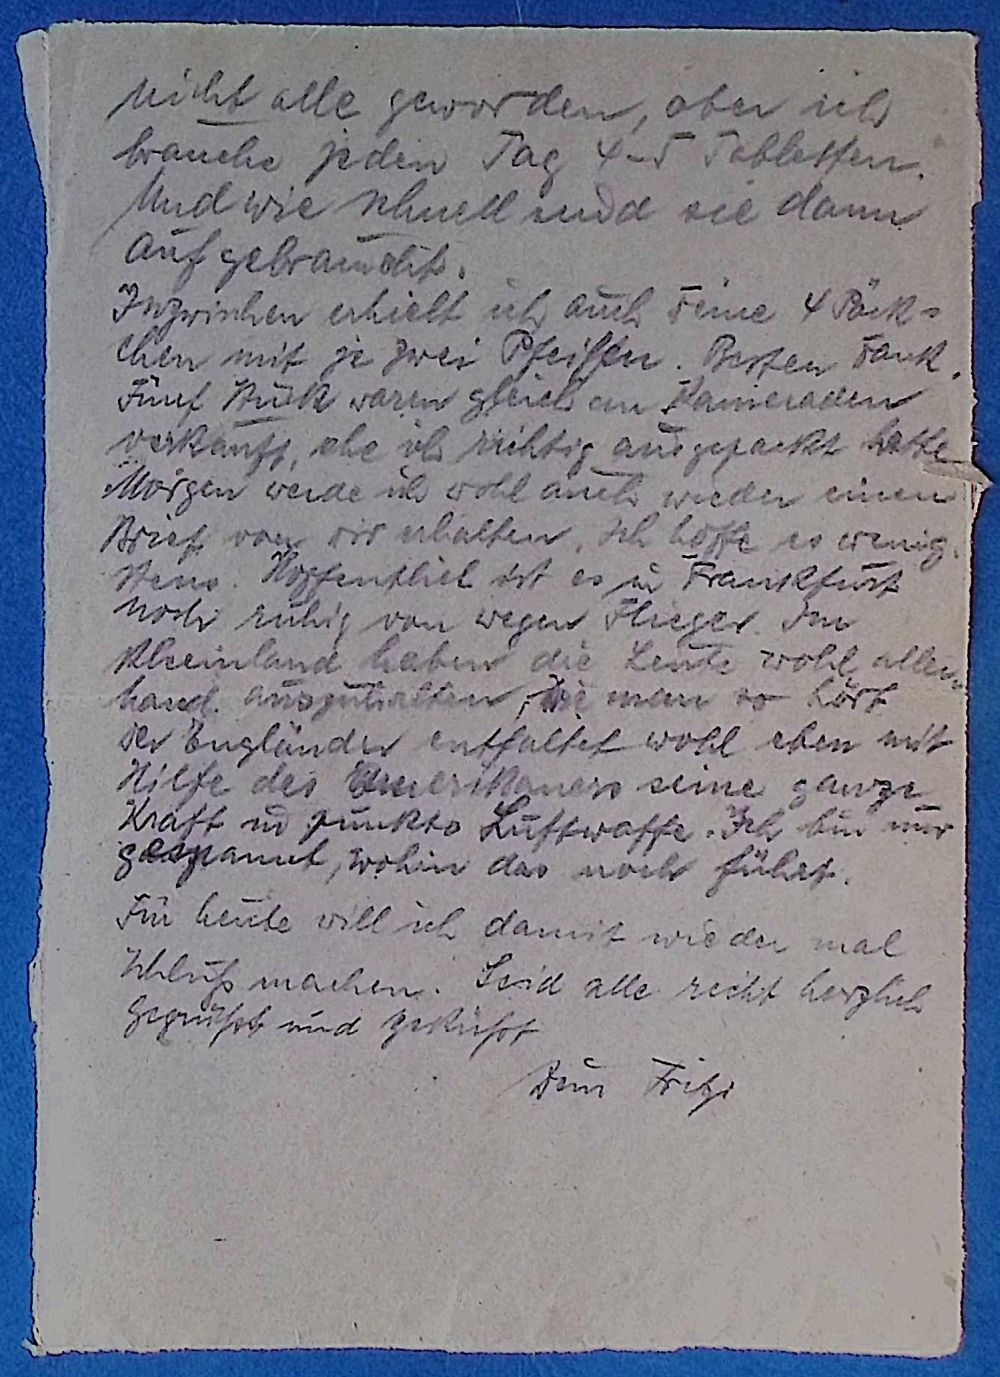 nicht alle geworden, aber ich
brauche jeden Tag 4-5 Tabletten.
Und wie schnell sind sie dann
aufgebraucht.
Inzwischen erhielt ich auch Deine 4 Päck-
chen mit je zwei Pfeifen. Besten Dank.
Fünf Stück waren gleich an Kameraden
verkauft, ehe ich richtig ausgepackt hatte
Morgen werde ich wohl auch wieder einen
Brief von Dir erhalten, ich hoffe es wenig-
stens. Hoffentlich ist es in Frankfurt
noch ruhig von wegen Flieger. Im
Rheinland haben die Leute wohl aller-
hand auszuhalten, wie man so hört
der Engländer entfaltet wohl eben mit
Hilfe des Amerikaners seine ganze
Kraft in punkto Luftwaffe. Ich bin nur
gespannt, wohin das noch führt.
Für heute will ich damit wieder mal
Schluß machen. Seid alle recht herzlich
gegrüßt und geküßt
Dein Fritz